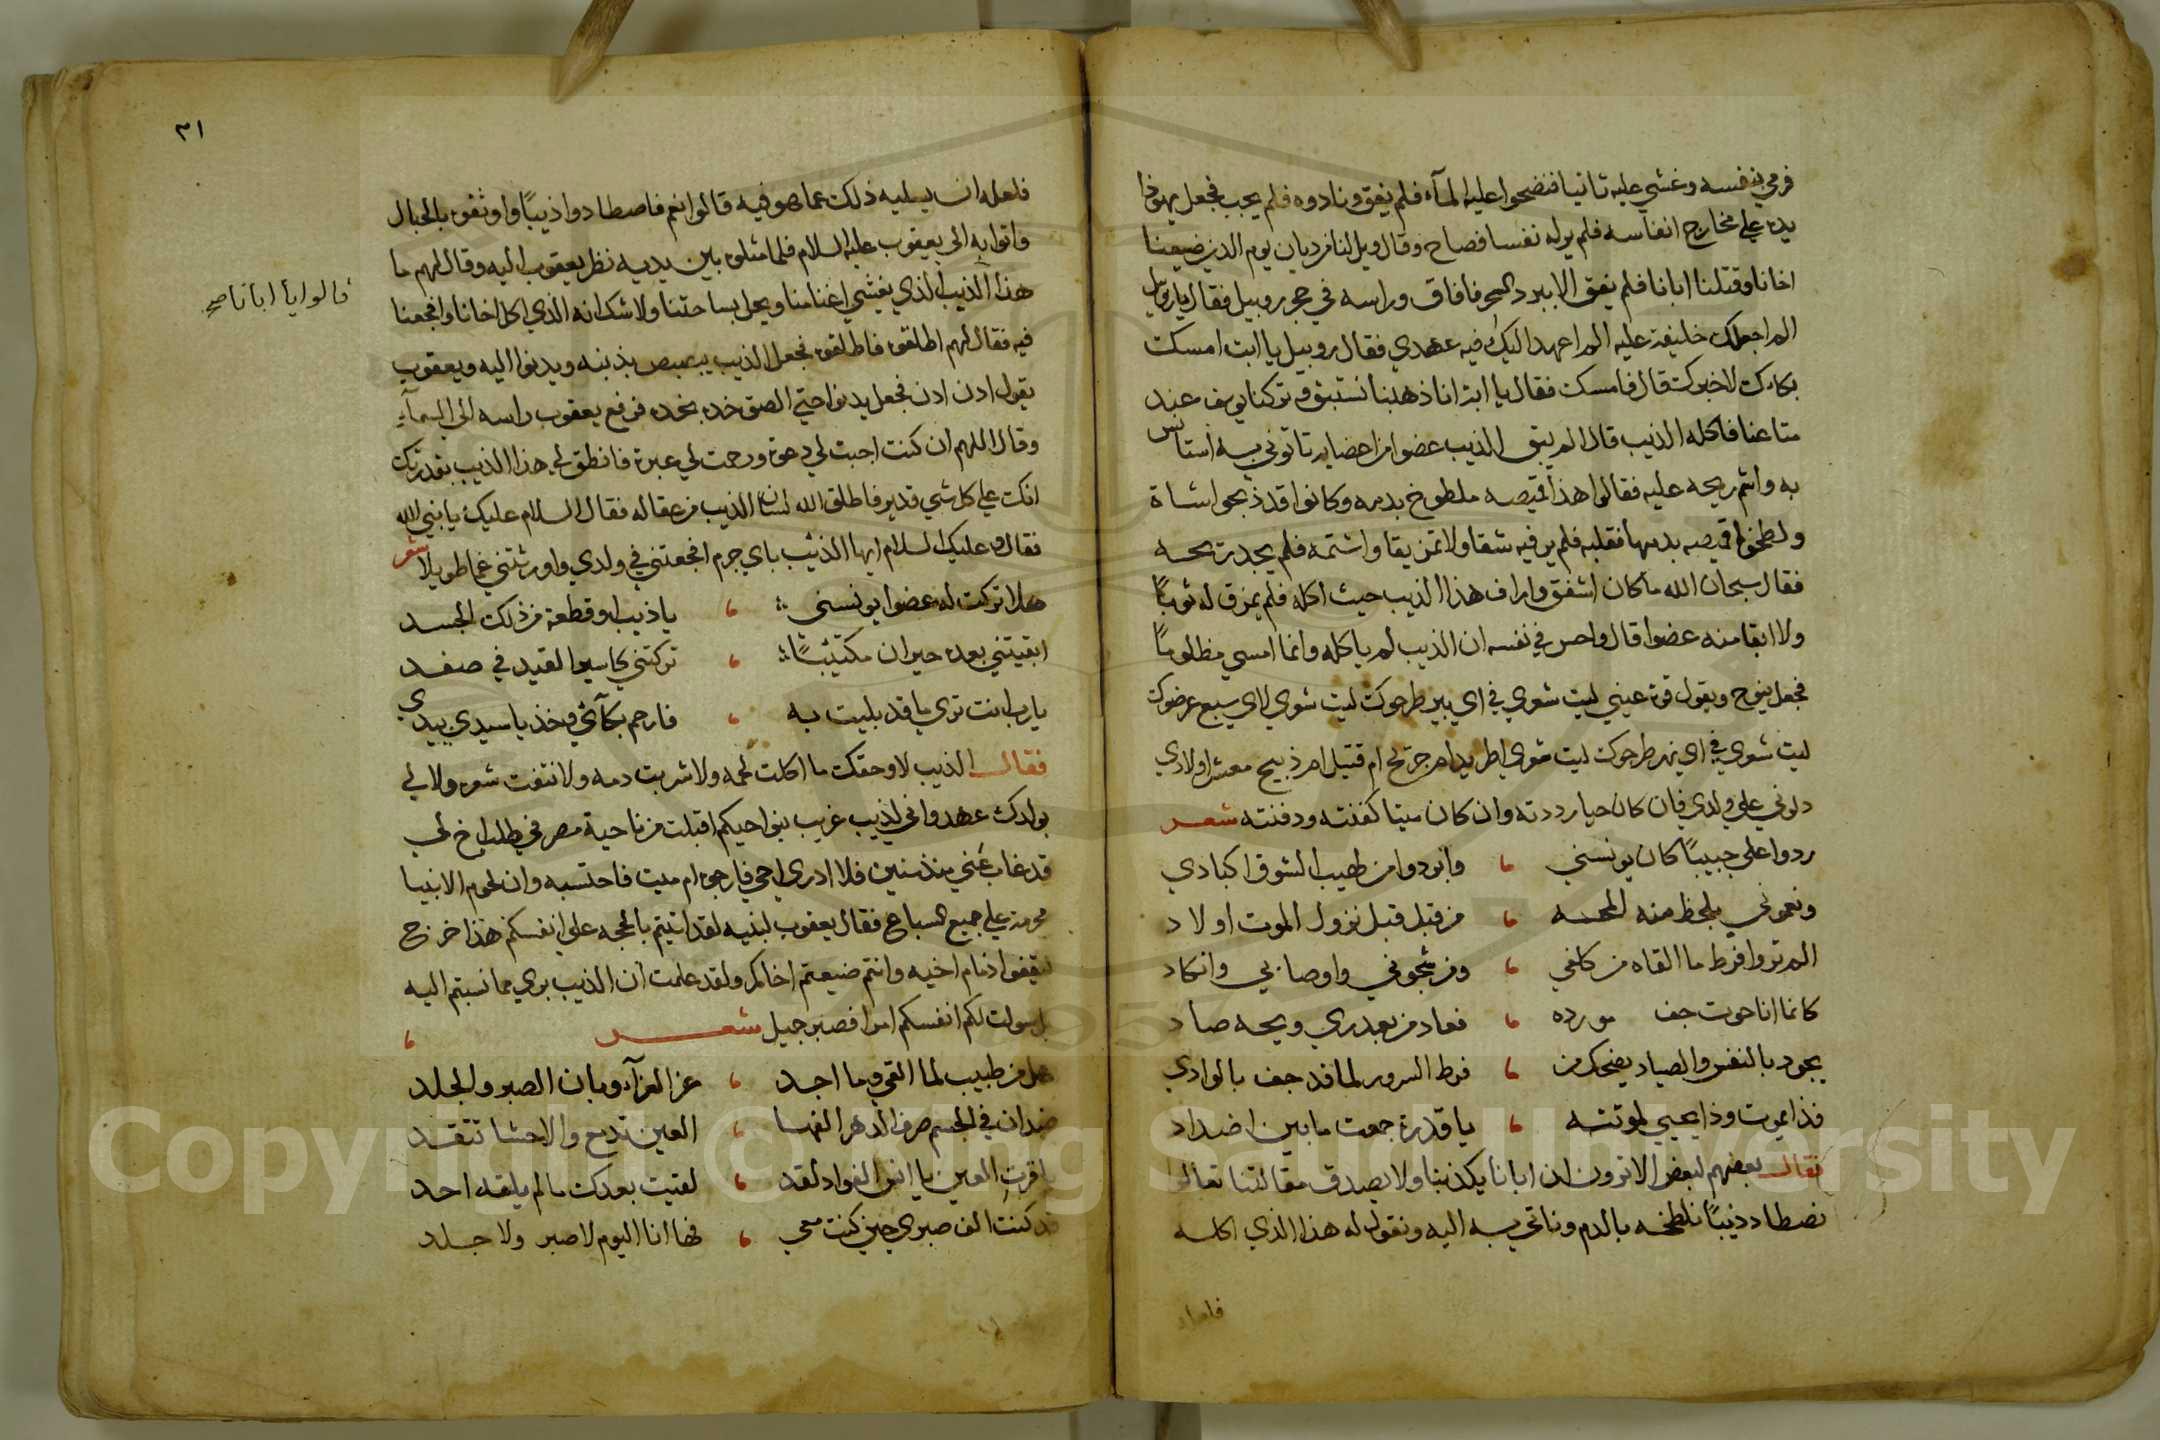 فرمي بنفسه وغشي عليه ثانيا فنضحوا عليه المآء فلم يفق ونادوه فلم يجب فجعل يهوذا
يده علي مخارج انفاسه فلم ير له نفسا فصاح وقال ويل لنا من ديان يوم الدين ضيعنا
اخانا وقتلنا ابانا فلم يفق الا ببرد السحر فافاق وراسه في حجر روبيل فقال يا روبيل
الم اجعلك خليفة عليه الم اعهد اليك فيه عهدي فقال روبيل يا ابت امسك
بكاءك لاخبرك قال فامسك فقال يا ابت انا ذهبنا نستبق وتركنا يوسف عند
متاعنا فاكله الذيب قال الم يبق الذيب عضوا من اعضايه تاتوني به استانس
به واشم ريحه عليه فقالوا هذا قميصه ملطوخ بدمه وكانوا قد ذبحوا شاة
ولطخوا قميصه بدمها فقلبه فلم ير فيه شقا ولا تمزيقا واشتمه فلم يجد ريحه
فقال سبحان الله ما كان اشفق واراف هذا الذيب حيث اكله فلم يمزق له ثوبًا
ولا ابقا منه عضوا قال واحس في نفسه ان الذيب لم ياكله وانما امسي مظلومًا
فجعل ينوح ويقول قرة عيني ليت شعري في اي بير طرحوك ليت شعري لاي سبع عرضوك
ليت شعري في اي نهر طرحوك ليت شعري اطريد ام جريح ام قتيل ام ذبيح معشر اولادي
دلوني علي ولدي فان كان حيا رددته وان كان ميتا كفنته ودفنته شعر
ردوا علي حبيبًا كان يونسني ، وابردوا من لهيب الشوق اكبادي
ونعموني بلحظ منه المحه ، من قبل قبل نزول الموت اولاد
الم تروا فرط ما القاه من كلفي ، ومن شجوني واوصابي وانكاد
كانما انا حوت جف مورده ، فعاد من بعد ري ويحه صاد
يجود بالنفس والصياد يضحك من ، فرط السرور لما قد جف بالوادي
فذا يموت وذا يحيي لموتته ، يا قدرة جمعت ما بين اضداد
فقال بعضهم لبعض الا ترون ان ابانا يكذبنا ولا يصدق مقالتنا تعالوا
نصطاد ذيبًا نلطخه بالدم وناتي به اليه ونقول له هذا الذي اكله
فلعله
٣١
فلعله ان يسليه ذلك عما هو فيه قالوا نعم فاصطادوا ذيبًا واوثقوه بالحبال
واتوا به الي يعقوب عليه السلام فلما مثلوه بين يديه نظر يعقوب اليه وقال لهم ما
هذا الذيب الذي يغشي اغنامنا ويحل بساحتنا ولا شك انه الذي اكل اخانا وافجعنا
قالوا يا ابانا صح
فيه فقال لهم اطلقوه فاطلقوه فجعل الذيب يبصبص بذنبه ويدنوا اليه ويعقوب
يقول ادن ادن فجعل يدنوا حتي الصق خده بخده فرفع يعقوب راسه الي السمآء
وقال اللهم ان كنت اجبت لي دعوة ورحمت لي عبرة فانطق لي هذا الذيب بقدرتك
انك علي كل شي قدير فاطلق الله لسان الذيب من عقاله فقال السلام عليك يا نبي الله
فقال وعليك السلام ايها الذئب باي جرم افجعتني في ولدي واورثتني غما طويلا شعر
هلا تركت له عضوا يونسني ، يا ذيب او قطعة من ذلك الجسد
ابقيتني بعده حيران مكتئبًا ، تركتني كاسير القيد في صفد
يا رب انت تري ما قد بليت به ، فارحم بكآئي وخذ يا سيدي بيدي
فقال الذيب لا وحقك ما اكلت لحمه ولا شربت دمه ولا نتفت شعره ولا لي
بولدك عهد واني لذيب غريب بنواحيكم اقبلت من ناحية مصر في طلب اخ لي
قد غاب عني منذ سنين فلا ادري احي فارجوه ام ميت فاحتسبه وان لحوم الانبيا
محرمة علي جميع السباع فقال يعقوب لبنيه لقد اتيتم بالحجه علي انفسكم هذا خرج
ليقفوا ذمام اخيه وانتم ضيعتم اخاكم ولقد علمت ان الذيب بري مما نسبتم اليه
بل سولت لكم انفسكم امرا فصبر جميل شعر ،
هل من طبيب لما القي وما اجد ، عز العزآء وبان الصبر والجلد
ضدان في الجسم صرف الدهر الفهما ، العين تدمع والاحشا تتقد
يا قرة العين يا انس الفواد لقد ، لقيت بعدك ما لم يلقه احد
قد كنت الف صبري حين كنت معي ، فها انا اليوم لا صبر ولا جلد
Copyright © King Saud University